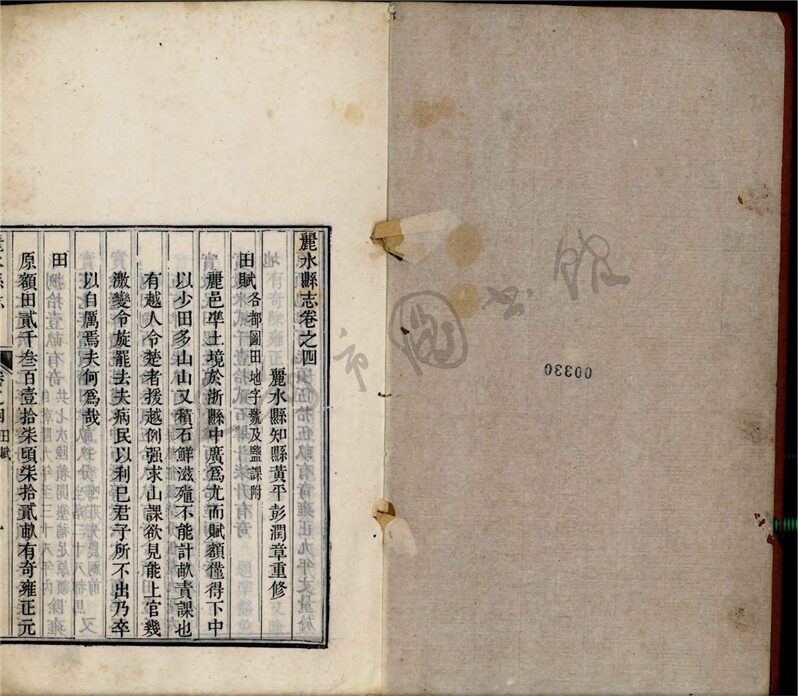 麗水縣志卷之四
麗水縣知縣黃平彭潤章重修
田賦 各都圖田地字號及鹽課附
麗邑準土境於浙縣中廣爲尤而賦額僅得下中
以少田多山山又積石鮮滋殖不能計畝責課也
有越人令楚者援越例强求山課欲見能上官幾
激變令旋罷去夫病民以利已君子所不出乃卒
以自厲焉夫何爲哉
田
原額田貳千叁百壹拾柒頃柒拾貳畝有奇雍正元
田賦
00330
市圖書館